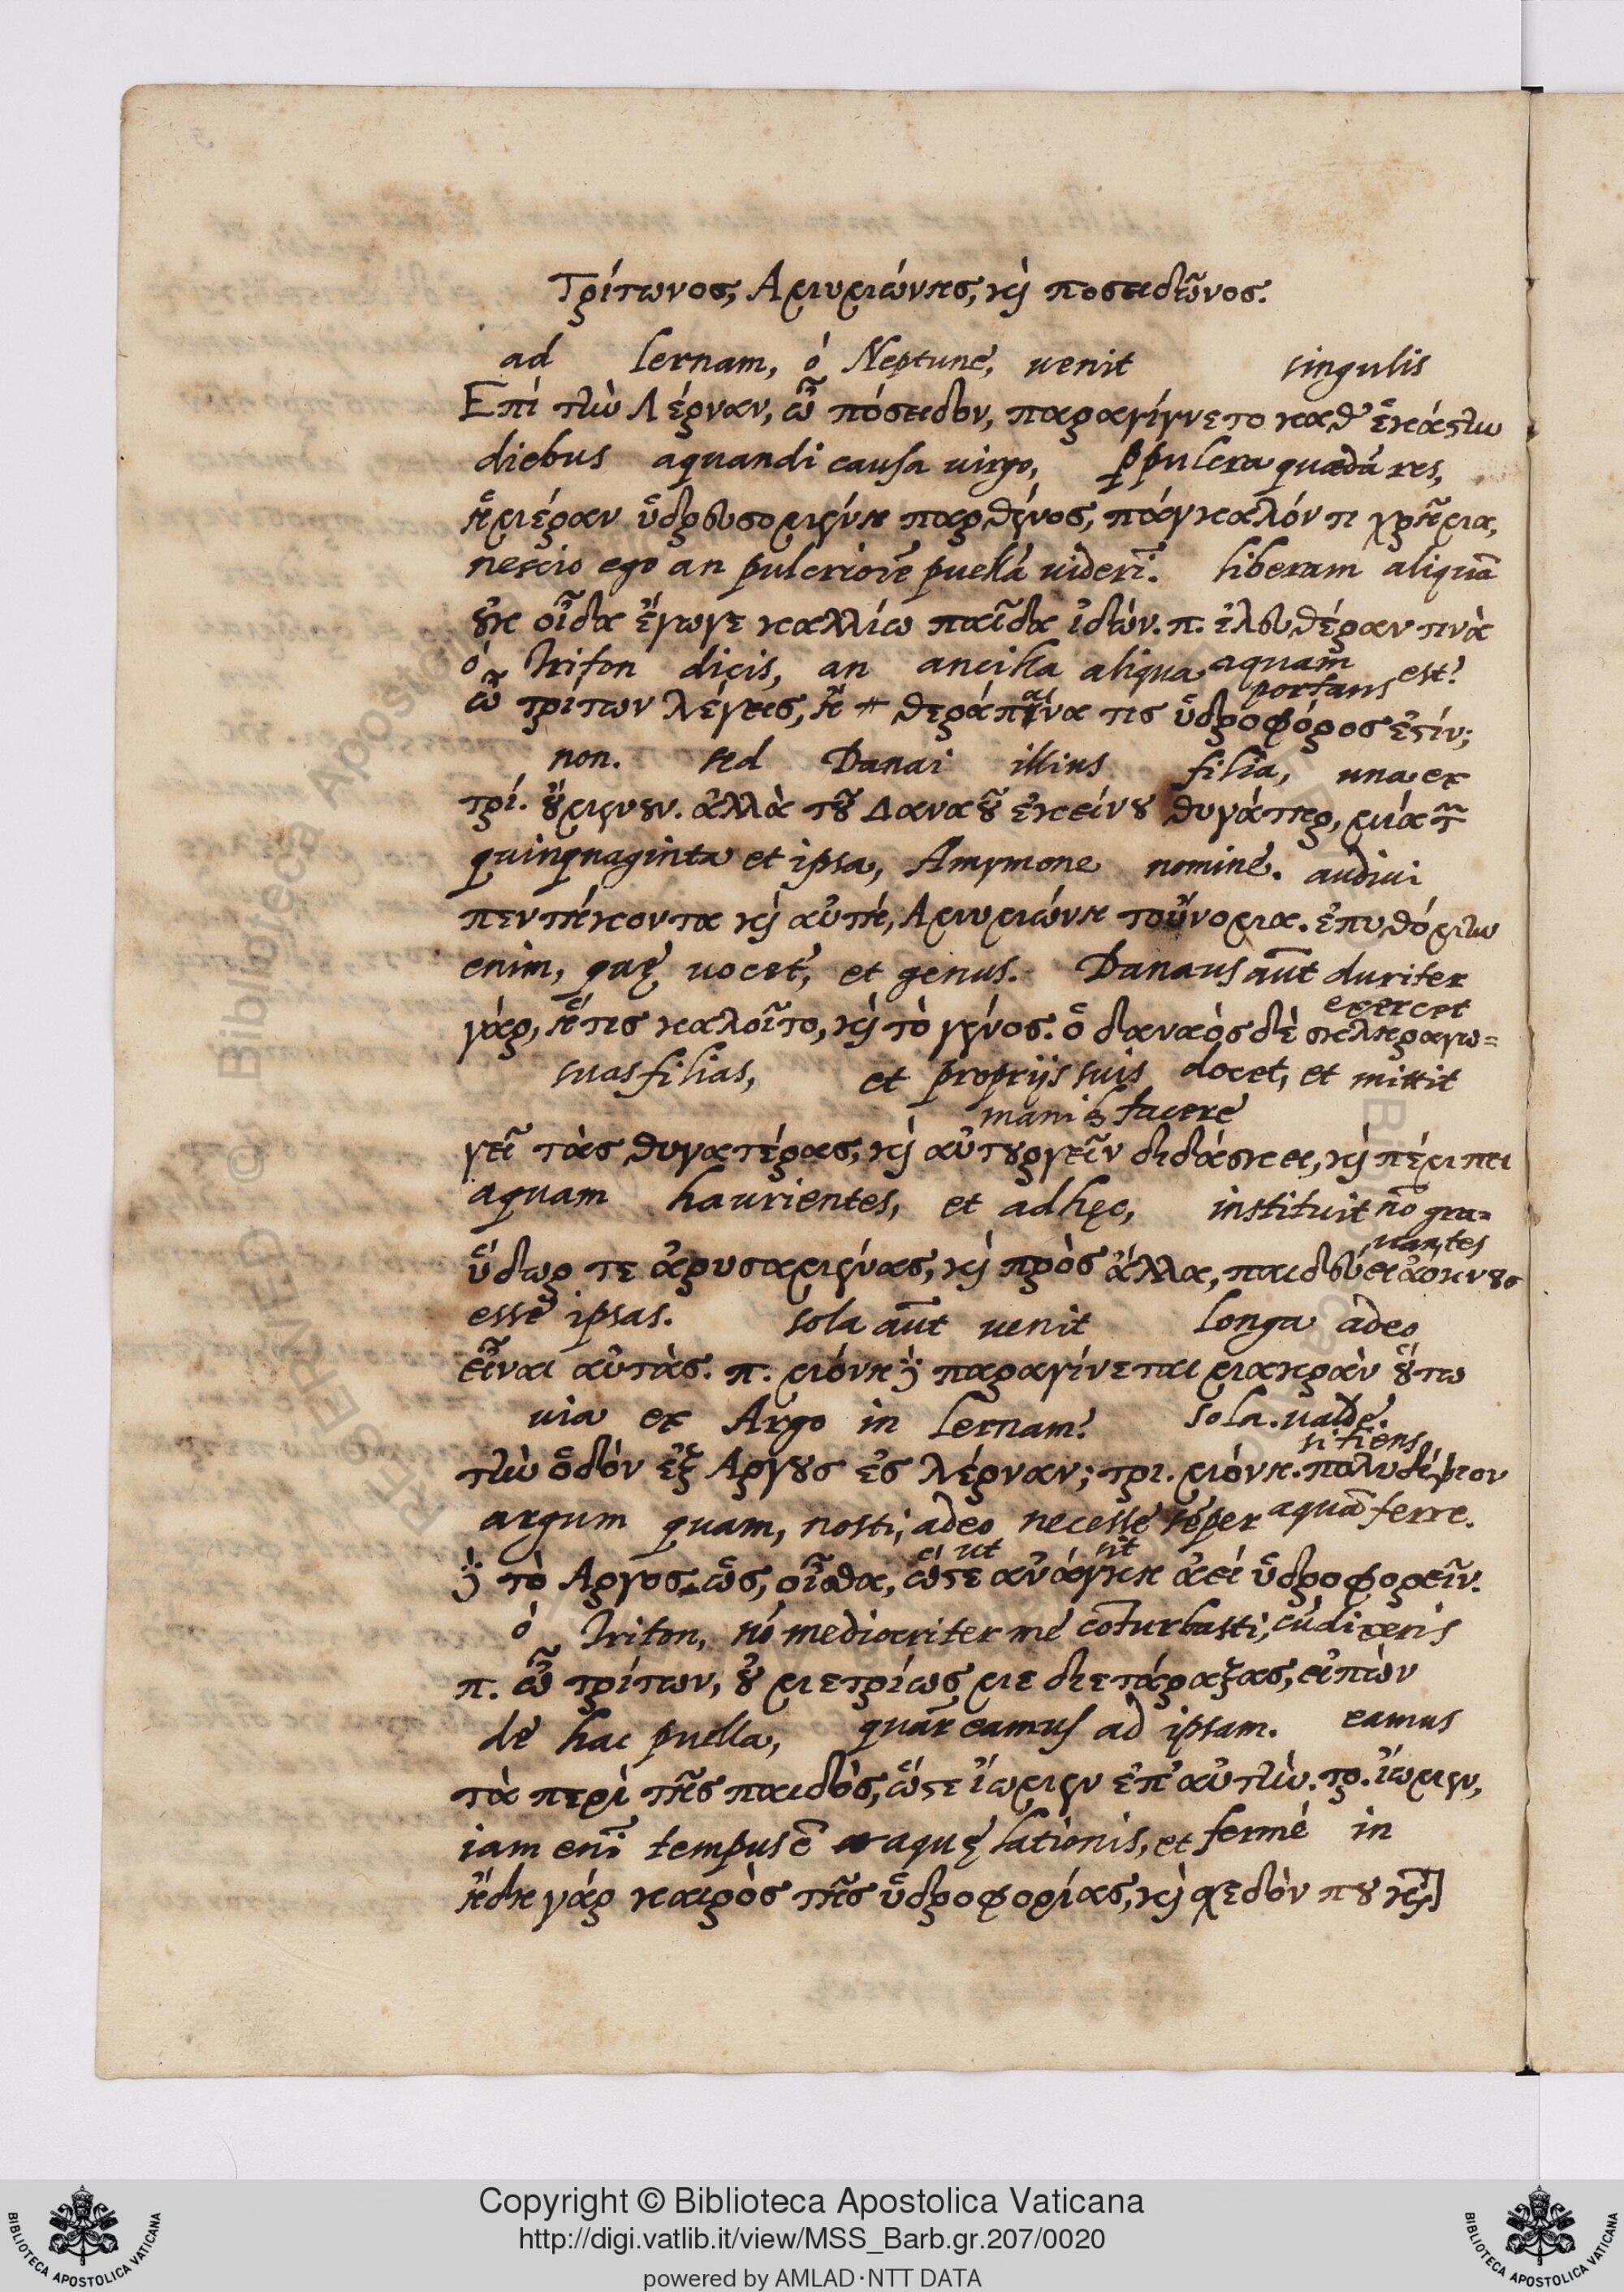 Τρίτωνος, Ἀμυμώνης, καὶ ποσειδῶνος.
ad lernam, ó Neptune, uenit singulis
Επί τὴν Λέρναν, ὦ πόσειδον, παραγίγνετο καθ' ἑκάστην
diebus aquandi causa uirgo, ꝑpulcra quædā res,
ἡμέραν ὑδρευσομένη παρθένος, πάγκαλόν τι χρῆμα,
nescio ego an pulcriorē puellā uiderī. liberam aliquā
οὐκ οἶδα ἔγωγε καλλίω παῖδα ἰδών. π. ἐλευθέραν τινὰ
ó Triton dicis, an ancilla aliqua aquam portans est?
ὦ τρίτων λέγεις, ἢ θεράπαινα τις ὑδροφόρος ἐστίν;
non. sed Danai illius filia, una ex
τρί. οὔμενουν. ἀλλὰ τοῦ Δαναοῦ ἐκείνου θυγάτηρ, μία τῶν
quinquaginta et ipsa, Amymone nomine. audiui
πεντήκοντα καὶ αὐτή, Αμυμώνη τοὔνομα. ἐπυθόμην
enim, quę uocet', et genus. Danaus aūt duriter
exercet
γάρ, ἥτις καλοῖτο, καὶ τὸ γένος. ὁ δαναός δὲ σκληραγω=
suas filias, et proprijs suis docet, et mittit
manibꝫ facere
γεῖ τὰς θυγατέρας, καὶ αὐτουργεῖν διδάσκει, καὶ πέμπει
aquam haurientes, et ad hęc, instituit nō gra=
uantes
ὕδωρ τε ἀρυσαμένας, καὶ πρὸς ἄλλα, παιδεύει ἀόκνους
esse ipsas. sola aūt uenit longa adeo
εἶναι αὐτὰς. π. μόνη δὲ παραγίνεται μακρὰν οὕτω
uia ex Argo in Lernam? sola. ualde
sitiens
τὴν ὁδόν ἐξ Αργους ἐς λέρναν; τρι. μόνη. πολυδίψιον
argum quam, nosti, adeo necesse sēper aquā ferre.
ut sit
δὲ τὸ Αργος, ὡς, οἶσθα, ὥστε ἀνάγκη ἀεί ὑδροφορεῖν.
ó Triton, nō mediocriter me cōturbasti, cū dixeris
π. ὦ τρίτων, οὐ μετρίως με διετάραξας, εἰπὼν
de hac puella, quār eamus ad ipsam. eamus
τὰ περὶ τῆς παιδὸς, ὥστε ἴωμεν ἐπ' αὐτὴν. τρ. ἴωμεν,
iam enī tempus ē aquę lationis, et fermé in
ἤδη γάρ καιρὸς τῆς ὑδροφορίας, καὶ σχεδόν που κατ]
Copyright © Biblioteca Apostolica Vaticana
http://digi.vatlib.it/view/MSS_Barb.gr.207/0020
powered by AMLAD·NTT DATA
BIBLIOTECA APOSTOLICA VATICANA
BIBLIOTECA APOSTOLICA VATICANA